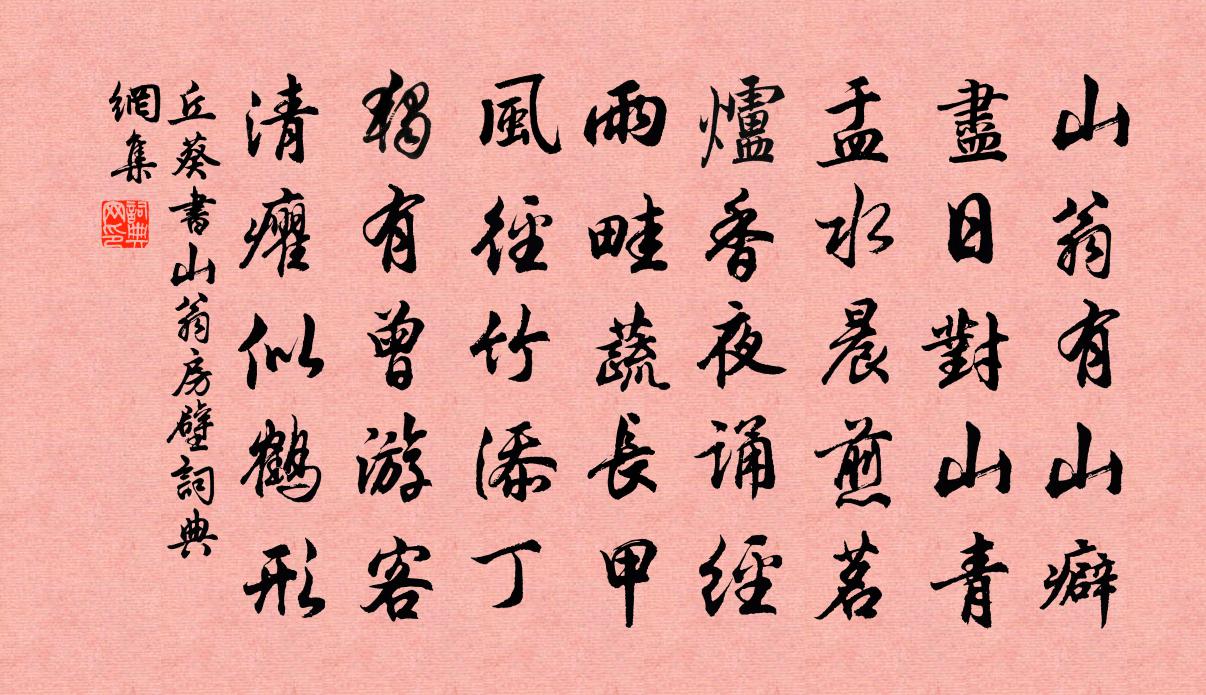 山翁有山癖
盡日對山青
盂水晨煎茗
爐香夜诵經
雨畦蔬長甲
風徑竹添丁
獨有曾游客
清癯似鶴形
丘葵書山翁房壁詞典
網集
詞典網印